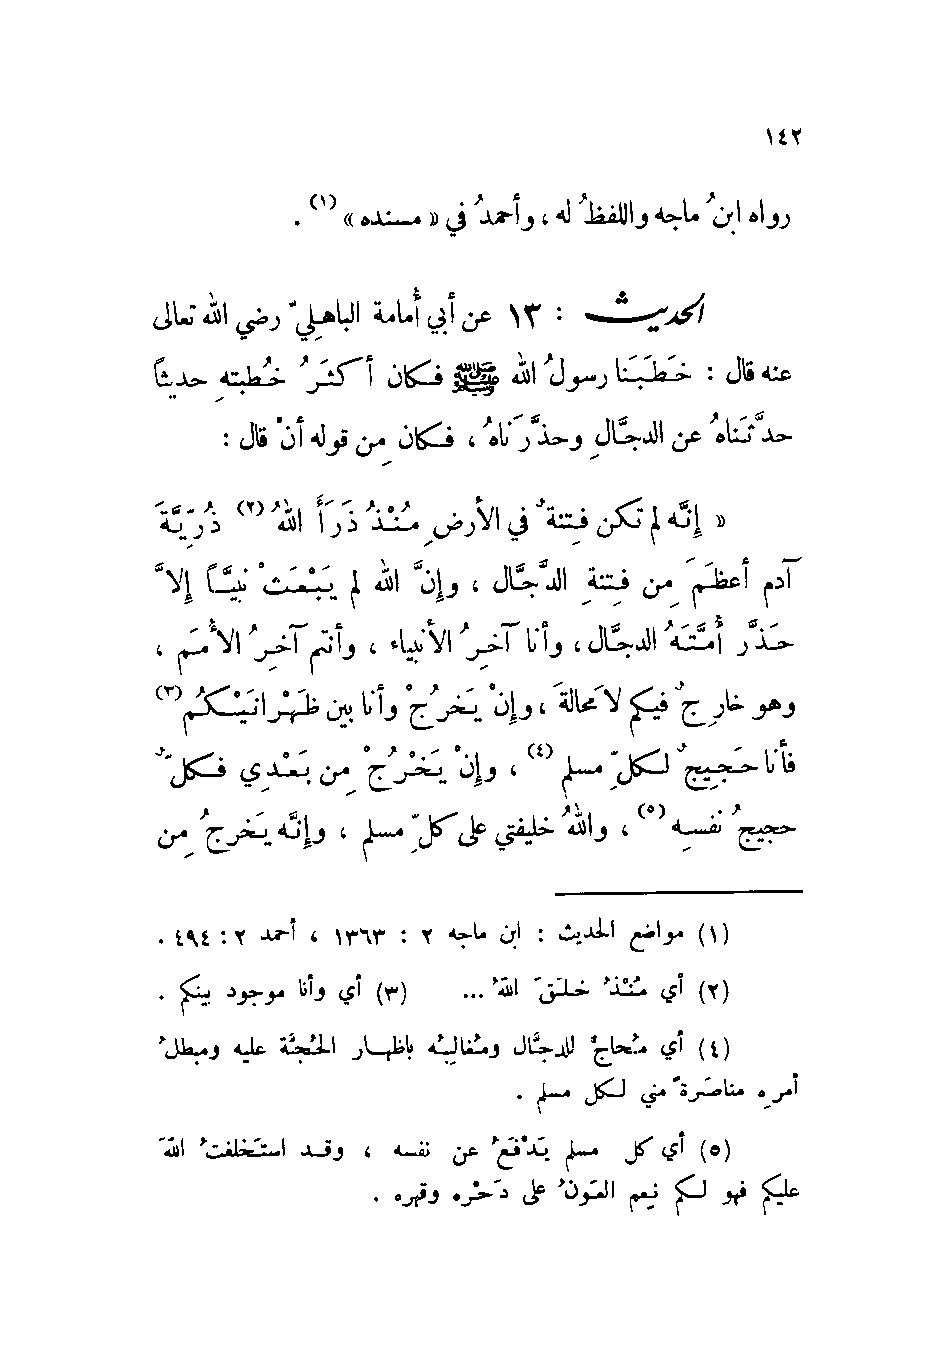 ١٤٢
رواه ابنُ ماجه واللفظُ له ، وأحمدُ في « مسنده » (١) .
الحديث : ١٣ عن أبي أُمامة الباهِليّ رضي الله تعالى
عنه قال : خَطَبَنا رسولُ الله ﷺ فكان أكثَرُ خُطبتِه حديثاً
حدَّثَناهُ عن الدجَّالِ وحذَّرَناهُ ، فكان مِن قولِه أنْ قال :
« إنَّه لم تكن فِتنةٌ في الأرضِ مُنْذُ ذَرَأَ اللهُ (٢) ذُرِّيَّةَ
آدم أعظَمَ مِن فِتنةِ الدَّجَّال ، وإنَّ الله لم يَبْعَثْ نبيَّاً إلاَّ
حَذَّرَ أُمَّتَهُ الدجَّال ، وأنا آخِرُ الأنبياء ، وأنتم آخِرُ الأُمَم ،
وهو خارِجٌ فيكم لا مَحالةَ ، وإنْ يَخرُجْ وأنا بين ظَهْرانَيْكُم (٣)
فأنا حَجيجٌ لكلِّ مسلم (٤) ، وإنْ يَخْرُجْ مِن بَعْدِي فكلٌّ
حجيجُ نفسِه (٥) ، واللهُ خليفتي على كلِّ مسلم ، وإنَّه يَخرجُ مِن
(١) مواضع الحديث : ابن ماجه ٢ : ١٣٦٣ ، أحمد ٢ : ٤٩٤ .
(٢) أي مُنْذُ خلَقَ اللهُ ... (٣) أي وأنا موجود بينكم .
(٤) أي مُحاجٌّ للدجَّال ومُغالِبُه بإظهار الحُجَّة عليه ومبطلُ
أمرِه مناصَرةً مني لكل مسلم .
(٥) أي كل مسلم يَدْفَعُ عن نفسه ، وقد استَخلفتُ اللهَ
عليكم فهو لكم نِعم العَونُ على دَحْرِه وقهره .